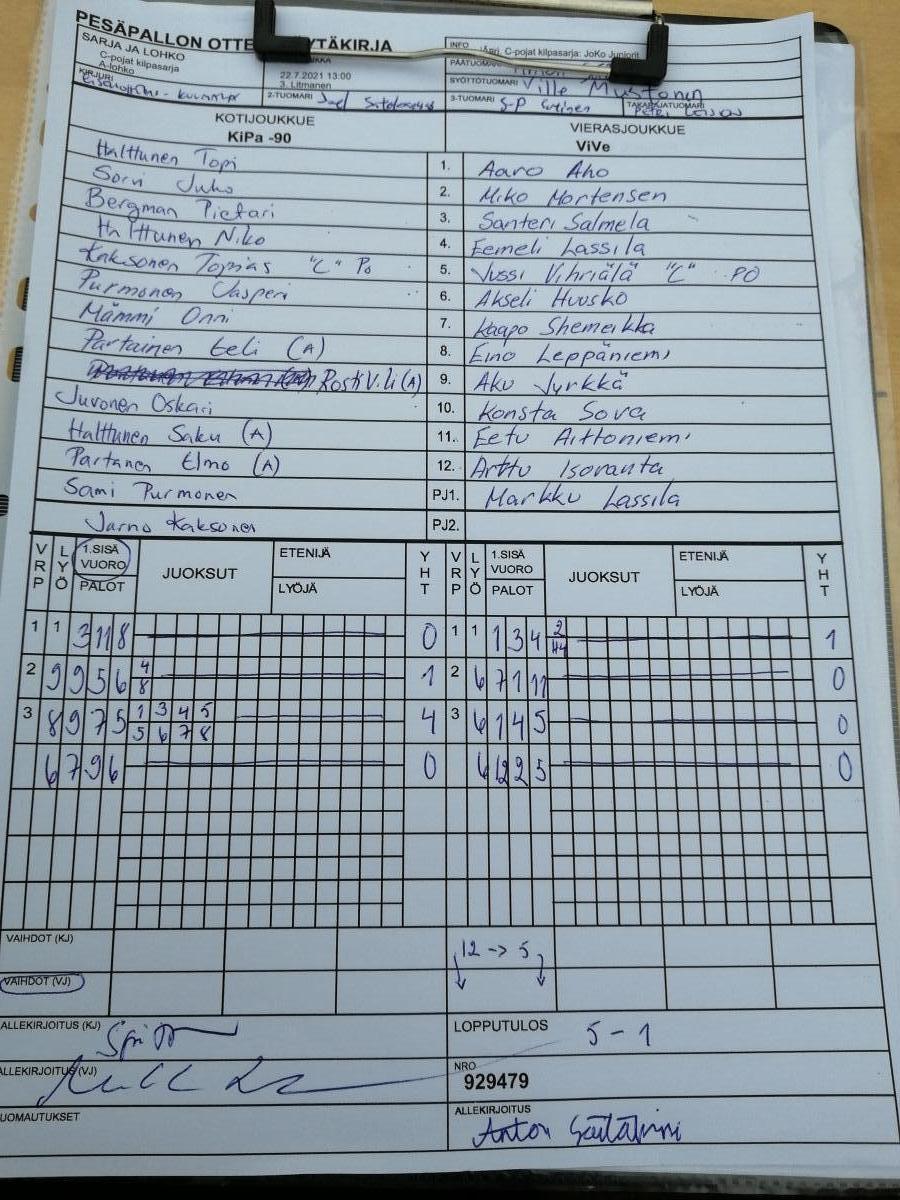 PESÄPALLON OTTE YTÄKIRJA
SARJA JA LOHKO
C-pojat kilpasarja
A-lohko
KIRJURI
22.7.2021 13:00
3. Litmanen
2-TUOMARI
INFO
C-pojat kilpasarja: JoKo Juniorit
PÄÄTUOMARI
SYÖTTÖTUOMARI Ville Mustonen
3-TUOMARI S-P
TAKARAJATUOMARI
KOTIJOUKKUE
KiPa -90
VIERASJOUKKUE
ViVe
Halttunen Topi 1. Aaro Aho
Sorvi Juho 2. Miko Mortensen
Bergman Pietari 3. Santeri Salmela
Halttunen Niko 4. Eemeli Lassila
Kaksonen Topias "C" Po 5. Jussi Vihriälä "C" PO
Purmonen Jasperi 6. Akseli Huusko
Mämmi Onni 7. Kaapo Shemeikka
Partainen Eeli (A) 8. Eino Leppäniemi
Rosti V.li (A) 9. Aku Jyrkkä
Juvonen Oskari 10. Konsta Sova
Halttunen Saku (A) 11. Eetu Aittoniemi
Partanen Elmo (A) 12. Arttu Isoranta
Sami Purmonen PJ1. Markku Lassila
Jarno Kaksonen PJ2.
VRP LYÖ 1.SISÄ VUORO PALOT JUOKSUT ETENIJÄ LYÖJÄ YHT VRP LYÖ 1.SISÄ VUORO PALOT JUOKSUT ETENIJÄ LYÖJÄ YHT
1 1 3 11 8 0 1 1 1 3 4 2 1
2 9 9 5 6 4 8 1 2 6 7 1 11 0
3 8 9 7 5 1 3 4 5 4 3 6 1 4 5 0
5 6 7 8
6 7 9 6 0 6 12 2 5 0
VAIHDOT (KJ) 12 -> 5
VAIHDOT (VJ)
ALLEKIRJOITUS (KJ)
LOPPUTULOS 5-1
ALLEKIRJOITUS (VJ)
NRO
929479
UOMAUTUKSET
ALLEKIRJOITUS
Anton